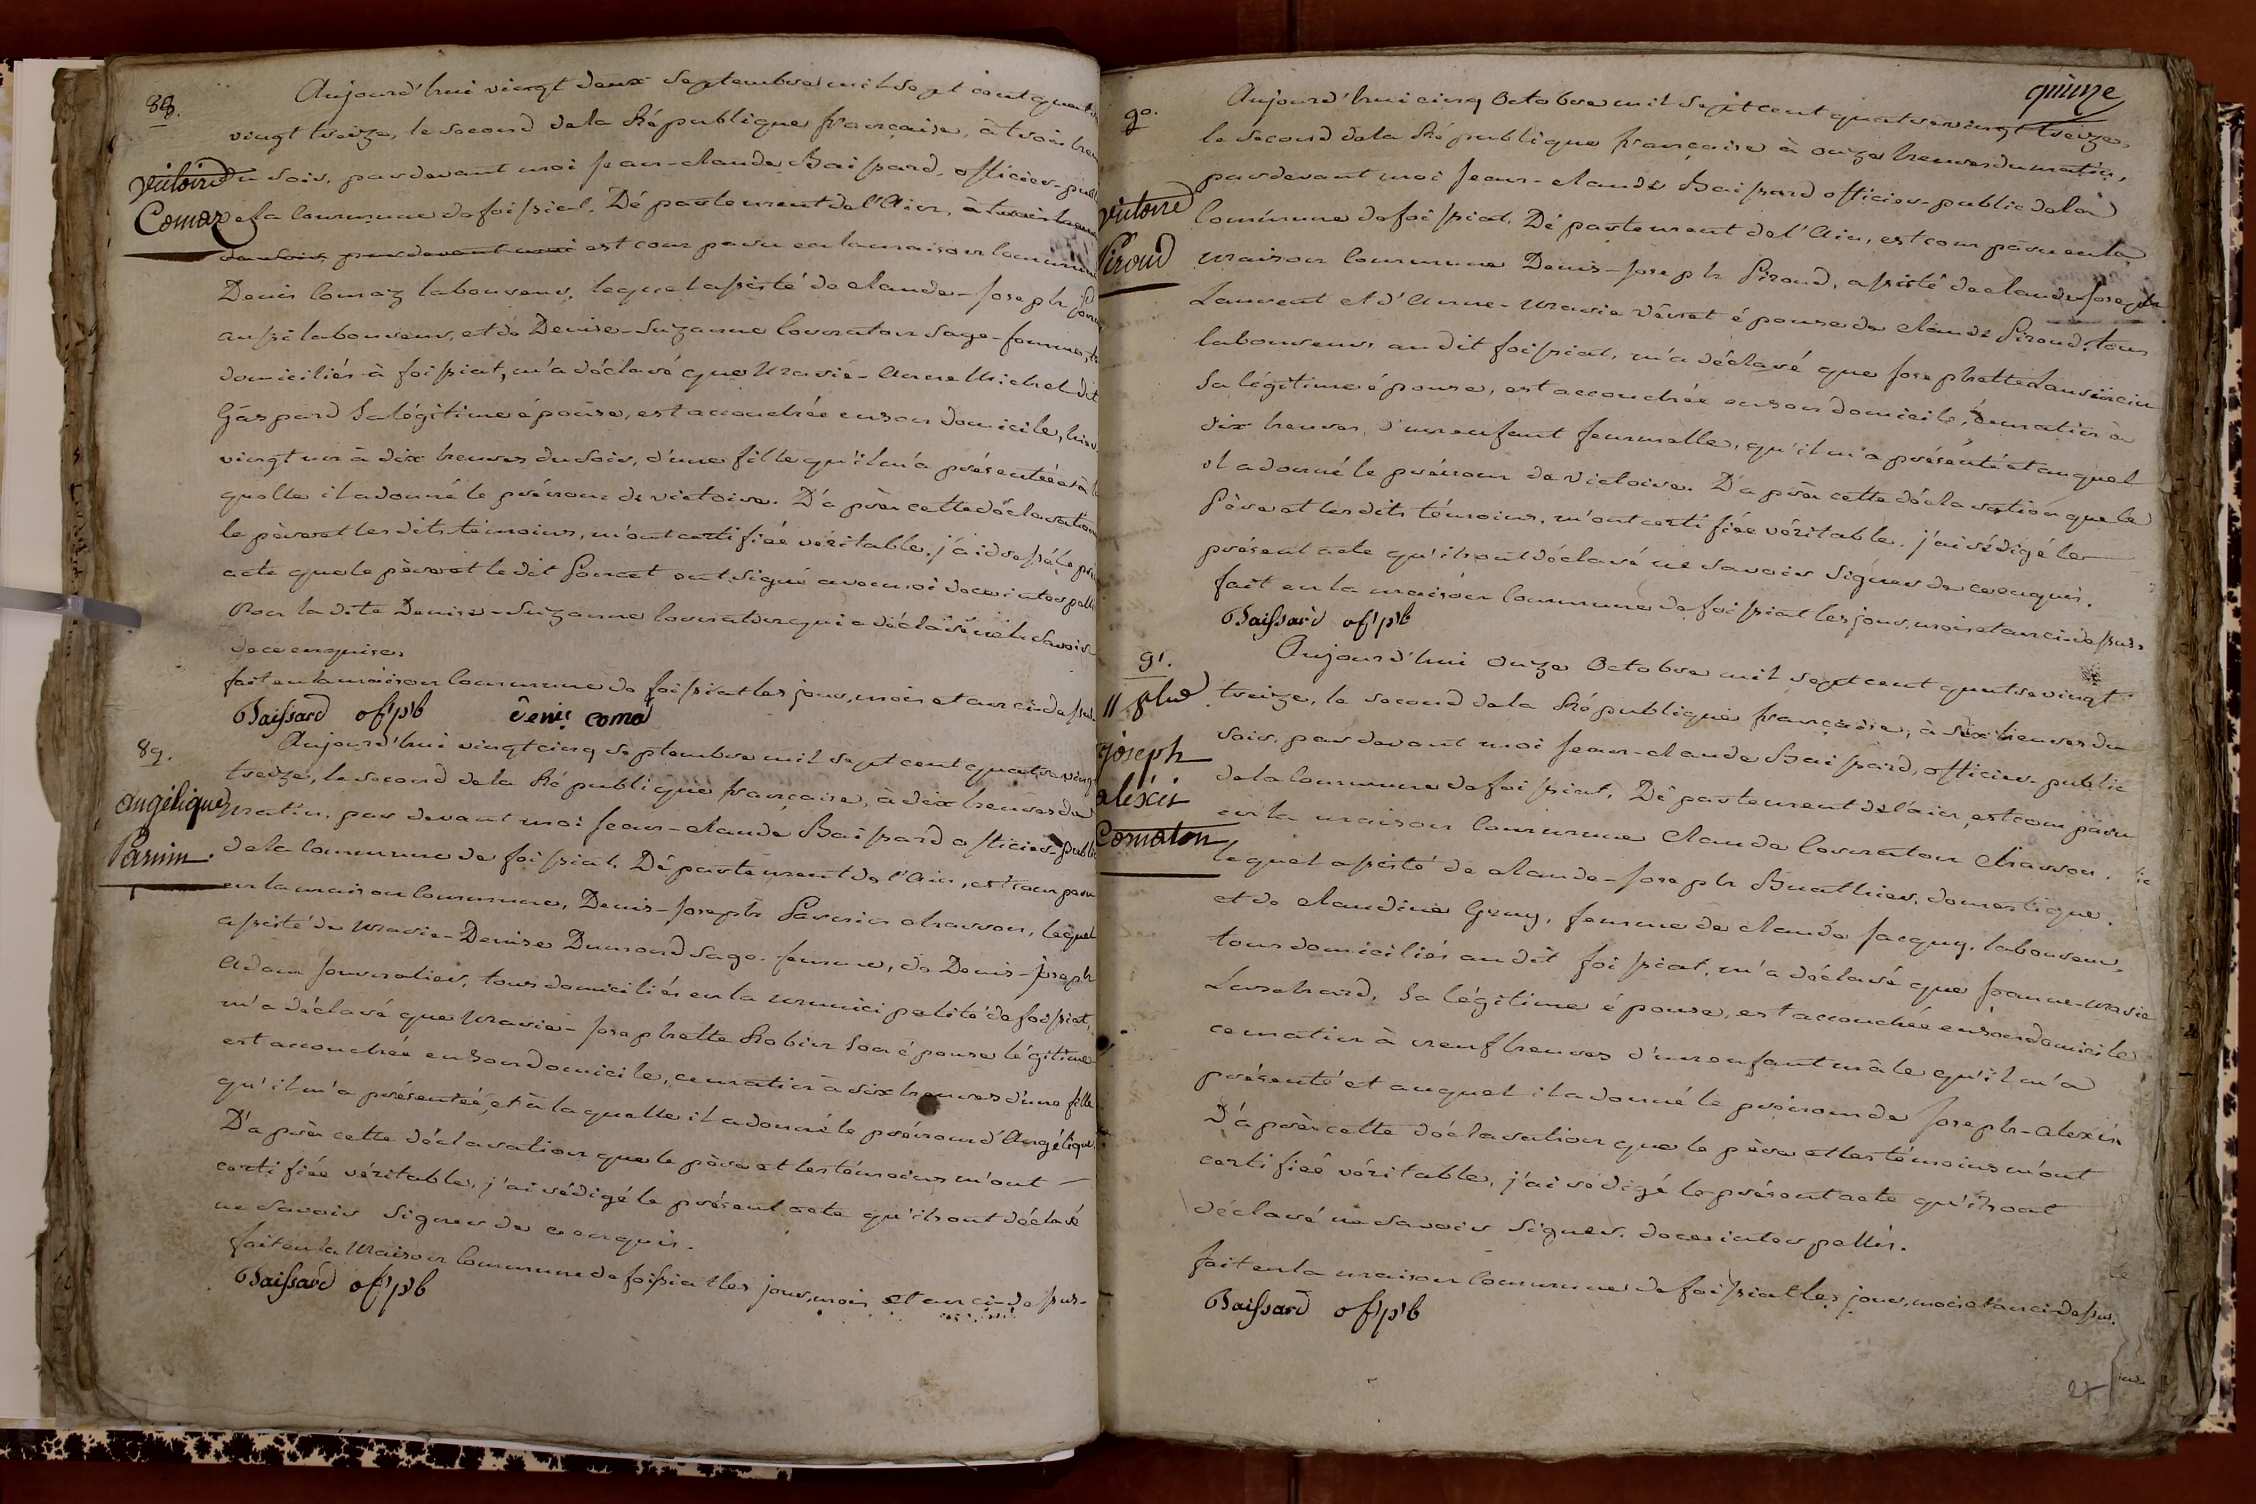 88.
Victoire
Comaz
Aujourd'hui vingt deux septembre mil sept cent quatre
vingt treize, le second de la République française, à trois heures
du soir, pardevant moi Jean-claude Baissard, officier-public
de la Commune de foissiat, Département de l'Ain, à trois heures
du soir pardevant moi est comparu en la maison commune
Denis Comaz laboureur, lequel assisté de claude-Joseph
aussi laboureur, et de Denise-Suzanne Cornaton Sage-femme,
domiciliés à foissiat, m'a déclaré que Marie-Anne Michel dit
Gaspard sa légitime épouse, est accouchée en son domicile, hier
vingt un à dix heures du soir, d'une fille qu'il m'a présentée et à la
quelle il a donné le prénom de victoire. D'après cette déclaration
le père et les dits témoins, m'ont certifiée véritable, j'ai dressé le
acte que le père et le dit Poncet ont signé avec moi de ce interpellés
Non la dite Denise-Suzanne Cornaton qui a déclaré ne le savoir
de ce enquise.
fait en la maison Commune de foissiat les jour, mois et an ci dessus
Baissard of p b denis coma
89.
angélique
Pannin.
Aujourd'hui vingt cinq septembre mil sept cent quatre vingt
treize, le second de la République française, à dix heures du
matin, par devant moi Jean-claude Baissard officier-public
de la Commune de foissiat, Département de l'Ain, est comparu
en la maison commune, Denis-Joseph charron, lequel
assisté de Marie-Denise Dumond Sage-femme, de Denis-Joseph
Adam Journalier, tous domiciliés en la municipalité de foissiat,
m'a déclaré que Marie-Josephette Robin son épouse légitime
est accouchée en son domicile, ce matin à six heures d'une fille
qu'il m'a présentée, et à la quelle il a donné le prénom d'Angélique.
D'après cette déclaration que le père et les témoins m'ont
certifiée véritable, j'ai rédigé le présent acte qu'ils ont déclaré
ne savoir signer de ce enquis.
fait en la Maison Commune de foissiat les jour, mois et an ci-dessus.
Baissard of p b
quinze
90.
victoire
Piroud
Aujourd'hui cinq Octobre mil sept cent quatre vingt treize,
le second de la République française à onze heures du matin,
pardevant moi Jean-claude Baissard officier-public de la
Commune de foissiat, Département de l'Ain, est comparu en la
maison Commune Denis-Joseph Piroud, assisté de claude-Joseph
Laurent et d'Anne-Marie épouse de claude Piroud, tous
laboureurs audit foissiat, m'a déclaré que Josephette
Sa légitime épouse, est accouchée en son domicile, ce matin à
dix heures, d'un enfant femmelle, qu'il m'a présenté et auquel
il a donné le prénom de Victoire. D'après cette déclaration que le
Père et les dits témoins, m'ont certifiée véritable. j'ai rédigé le
présent acte qu'ils ont déclaré ne savoir signer de ce enquis.
fait en la maison Commune de foissiat les jour, mois et an ci dessus.
Baissard of p b
91.
11 8bre
joseph
aléxis
Cornaton
Aujourd'hui Onze Octobre mil sept cent quatre vingt
treize, le second de la République française, à six heures du
soir, pardevant moi Jean-claude Baissard, officier-public
de la Commune de foissiat, Département de l'ain, est comparu
en la maison Commune Claude Cornaton Charron,
lequel assisté de claude-Joseph Buathier, domestique.
et de claudine Gruy, femme de claude Jacquy, laboureur,
tous domiciliés audit foissiat, m'a déclaré que Jeanne-Marie
sa légitime épouse, est accouchée en son domicile
ce matin à neuf heures d'un enfant mâle qu'il m'a
présenté et auquel il a donné le prénom de Joseph-Alexis
D'après cette déclaration que le père et les témoins m'ont
certifiée véritable, j'ai rédigé le présent acte qu'ils ont
déclaré ne savoir signer. de ce interpellés.
fait en la maison Commune de foissiat les jour, mois et an ci dessus.
Baissard of p b
27